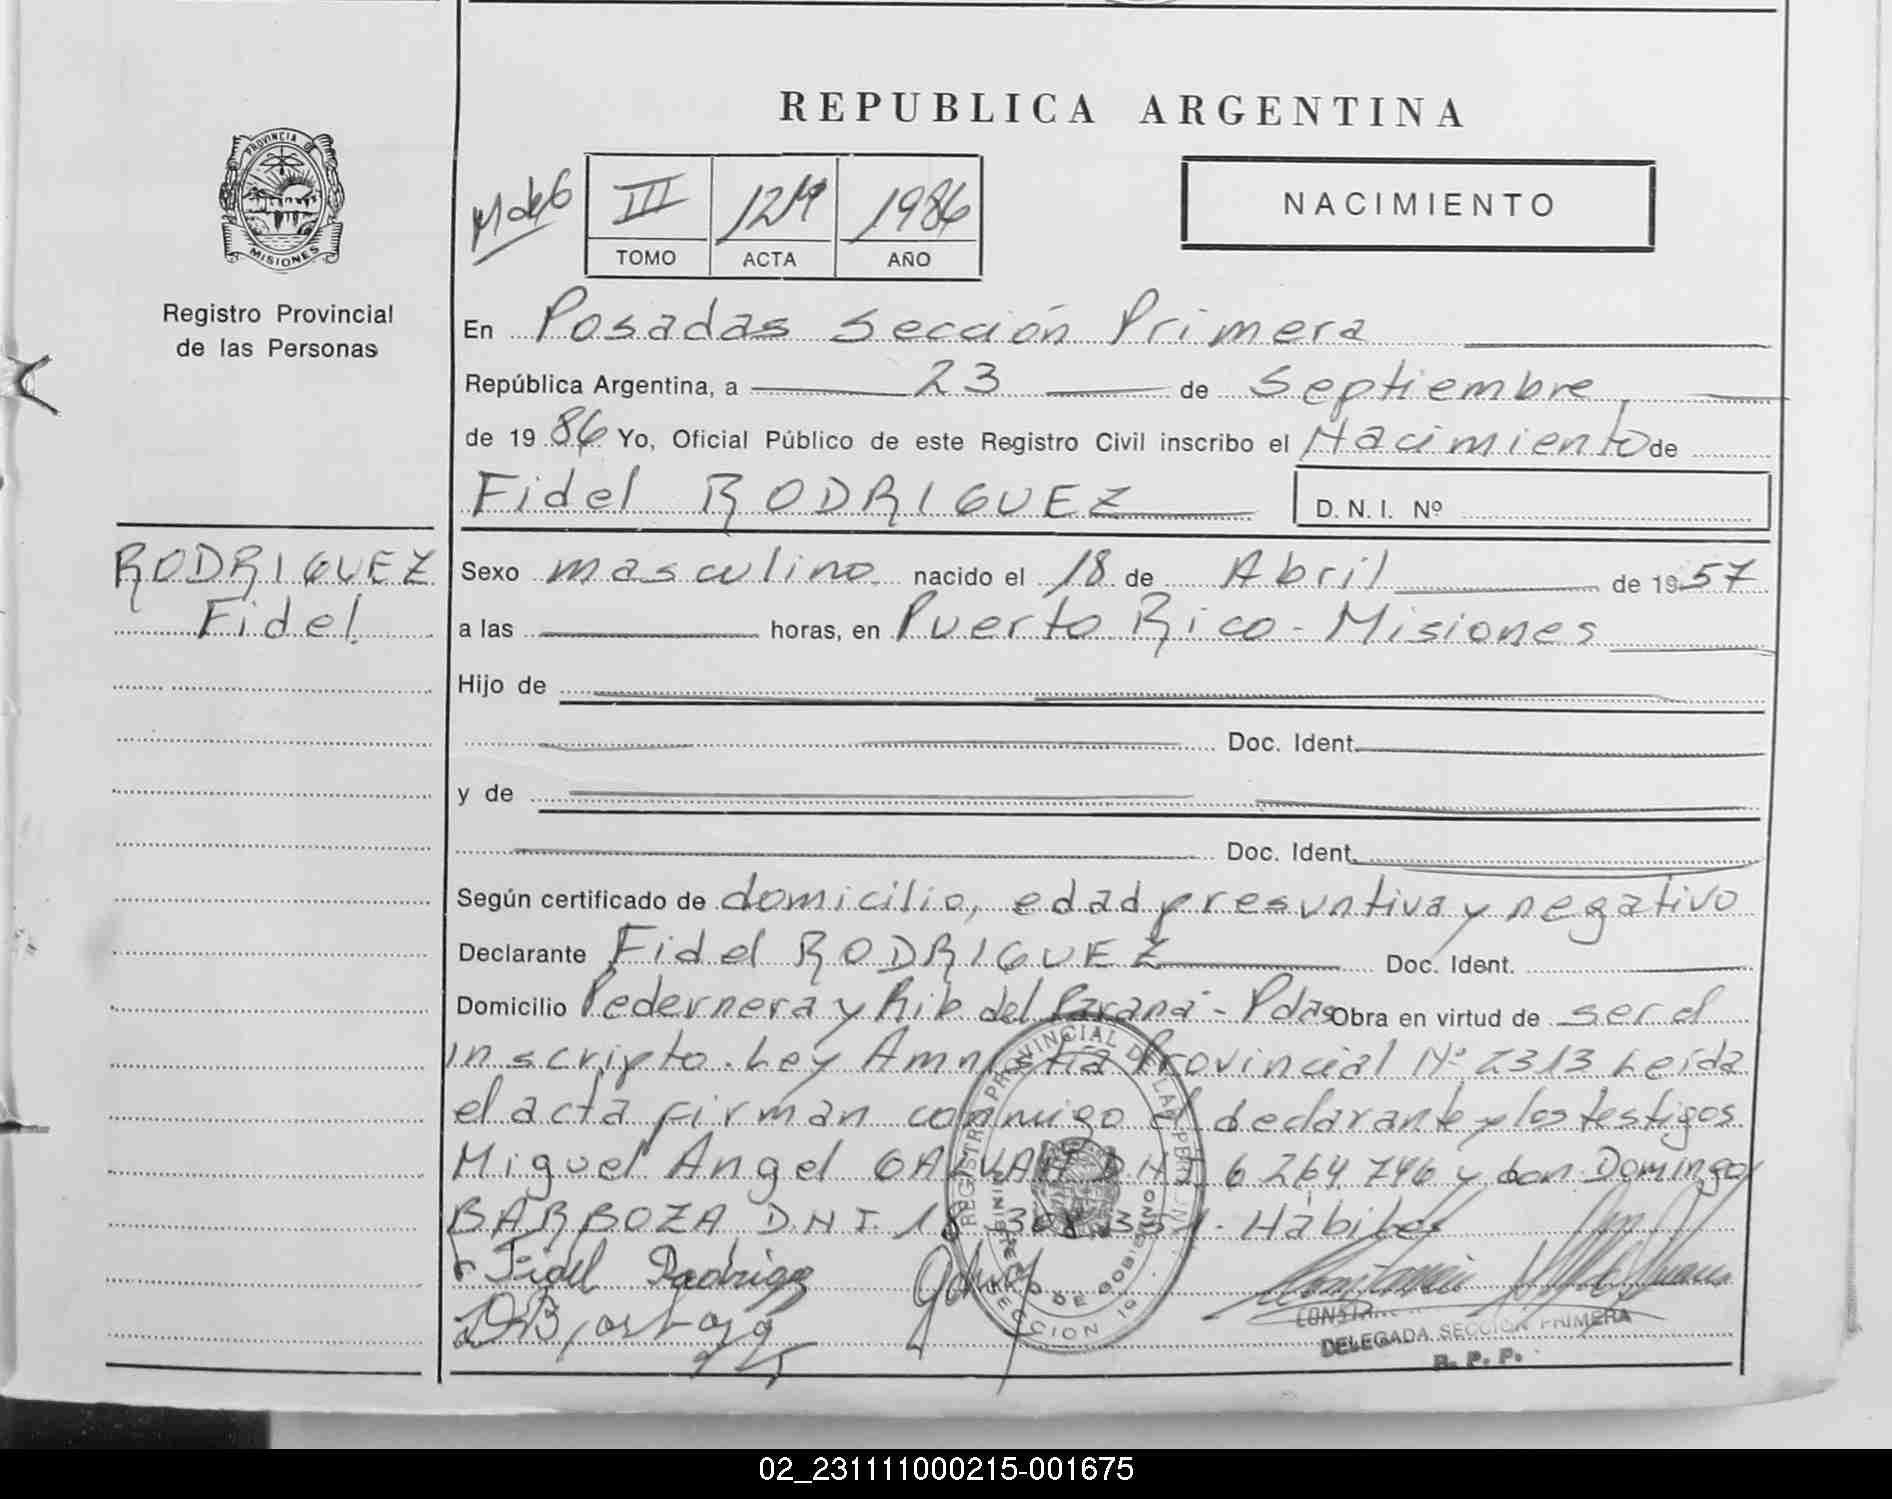 REPUBLICA ARGENTINA
PROVINCIA DE
MISIONES
Registro Provincial
de las Personas
III 1986
TOMO ACTA AÑO
NACIMIENTO
En Posadas Sección Primera
República Argentina, a 23 de Septiembre
de 1986 Yo, Oficial Público de este Registro Civil inscribo el Nacimiento de
Fidel RODRIGUEZ D.N.I. Nº
RODRIGUEZ
Fidel
Sexo masculino nacido el 18 de Abril de 1957
a las horas, en Puerto Rico - Misiones
Hijo de
Doc. Ident.
y de
Doc. Ident.
Según certificado de domicilio, edad presuntiva y negativo
Declarante Fidel RODRIGUEZ Doc. Ident.
Domicilio Pedernera y Rib del Paraná - Pdas Obra en virtud de ser el
inscripto. Ley Amnistia Provincial Nº 2313 Leída
el acta firman conmigo el declarante y los testigos
Miguel Angel D.N.I. 6 264 746 y don Domingo
BARBOZA D.N.I. 18 - Hábiles
Fidel Rodrigz
REGISTRO PROVINCIAL DE LAS PERSONAS
MINISTERIO DE GOBIERNO
SECCION 1ª
DELEGADA SECCION PRIMERA
R. P. P.
02_231111000215-001675